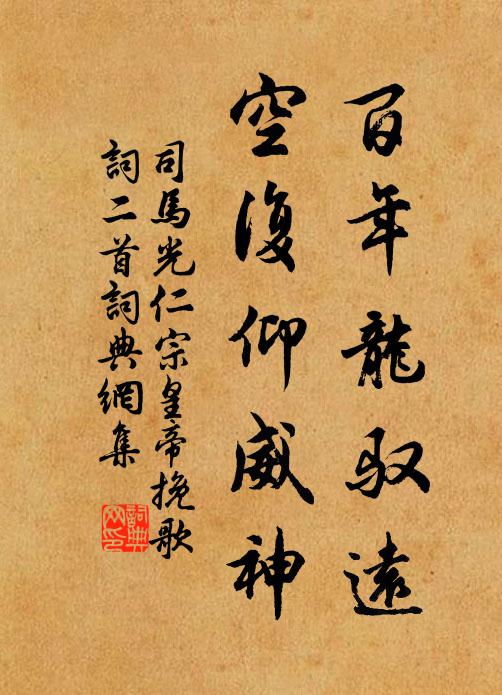 百年龍馭遠
空復仰威神
司馬光仁宗皇帝挽歌
詞二首詞典網集
詞典
网印